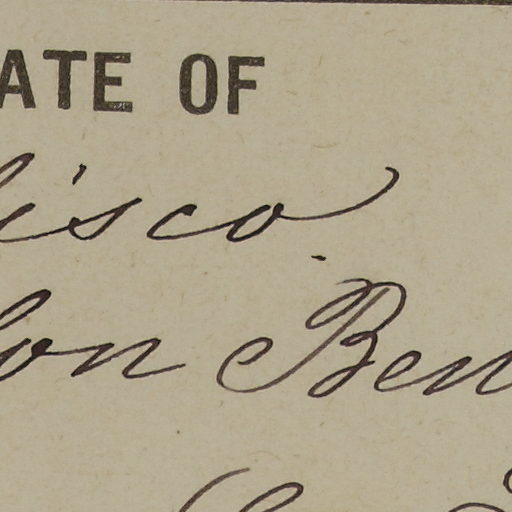 ATE OF
isco
on Ben